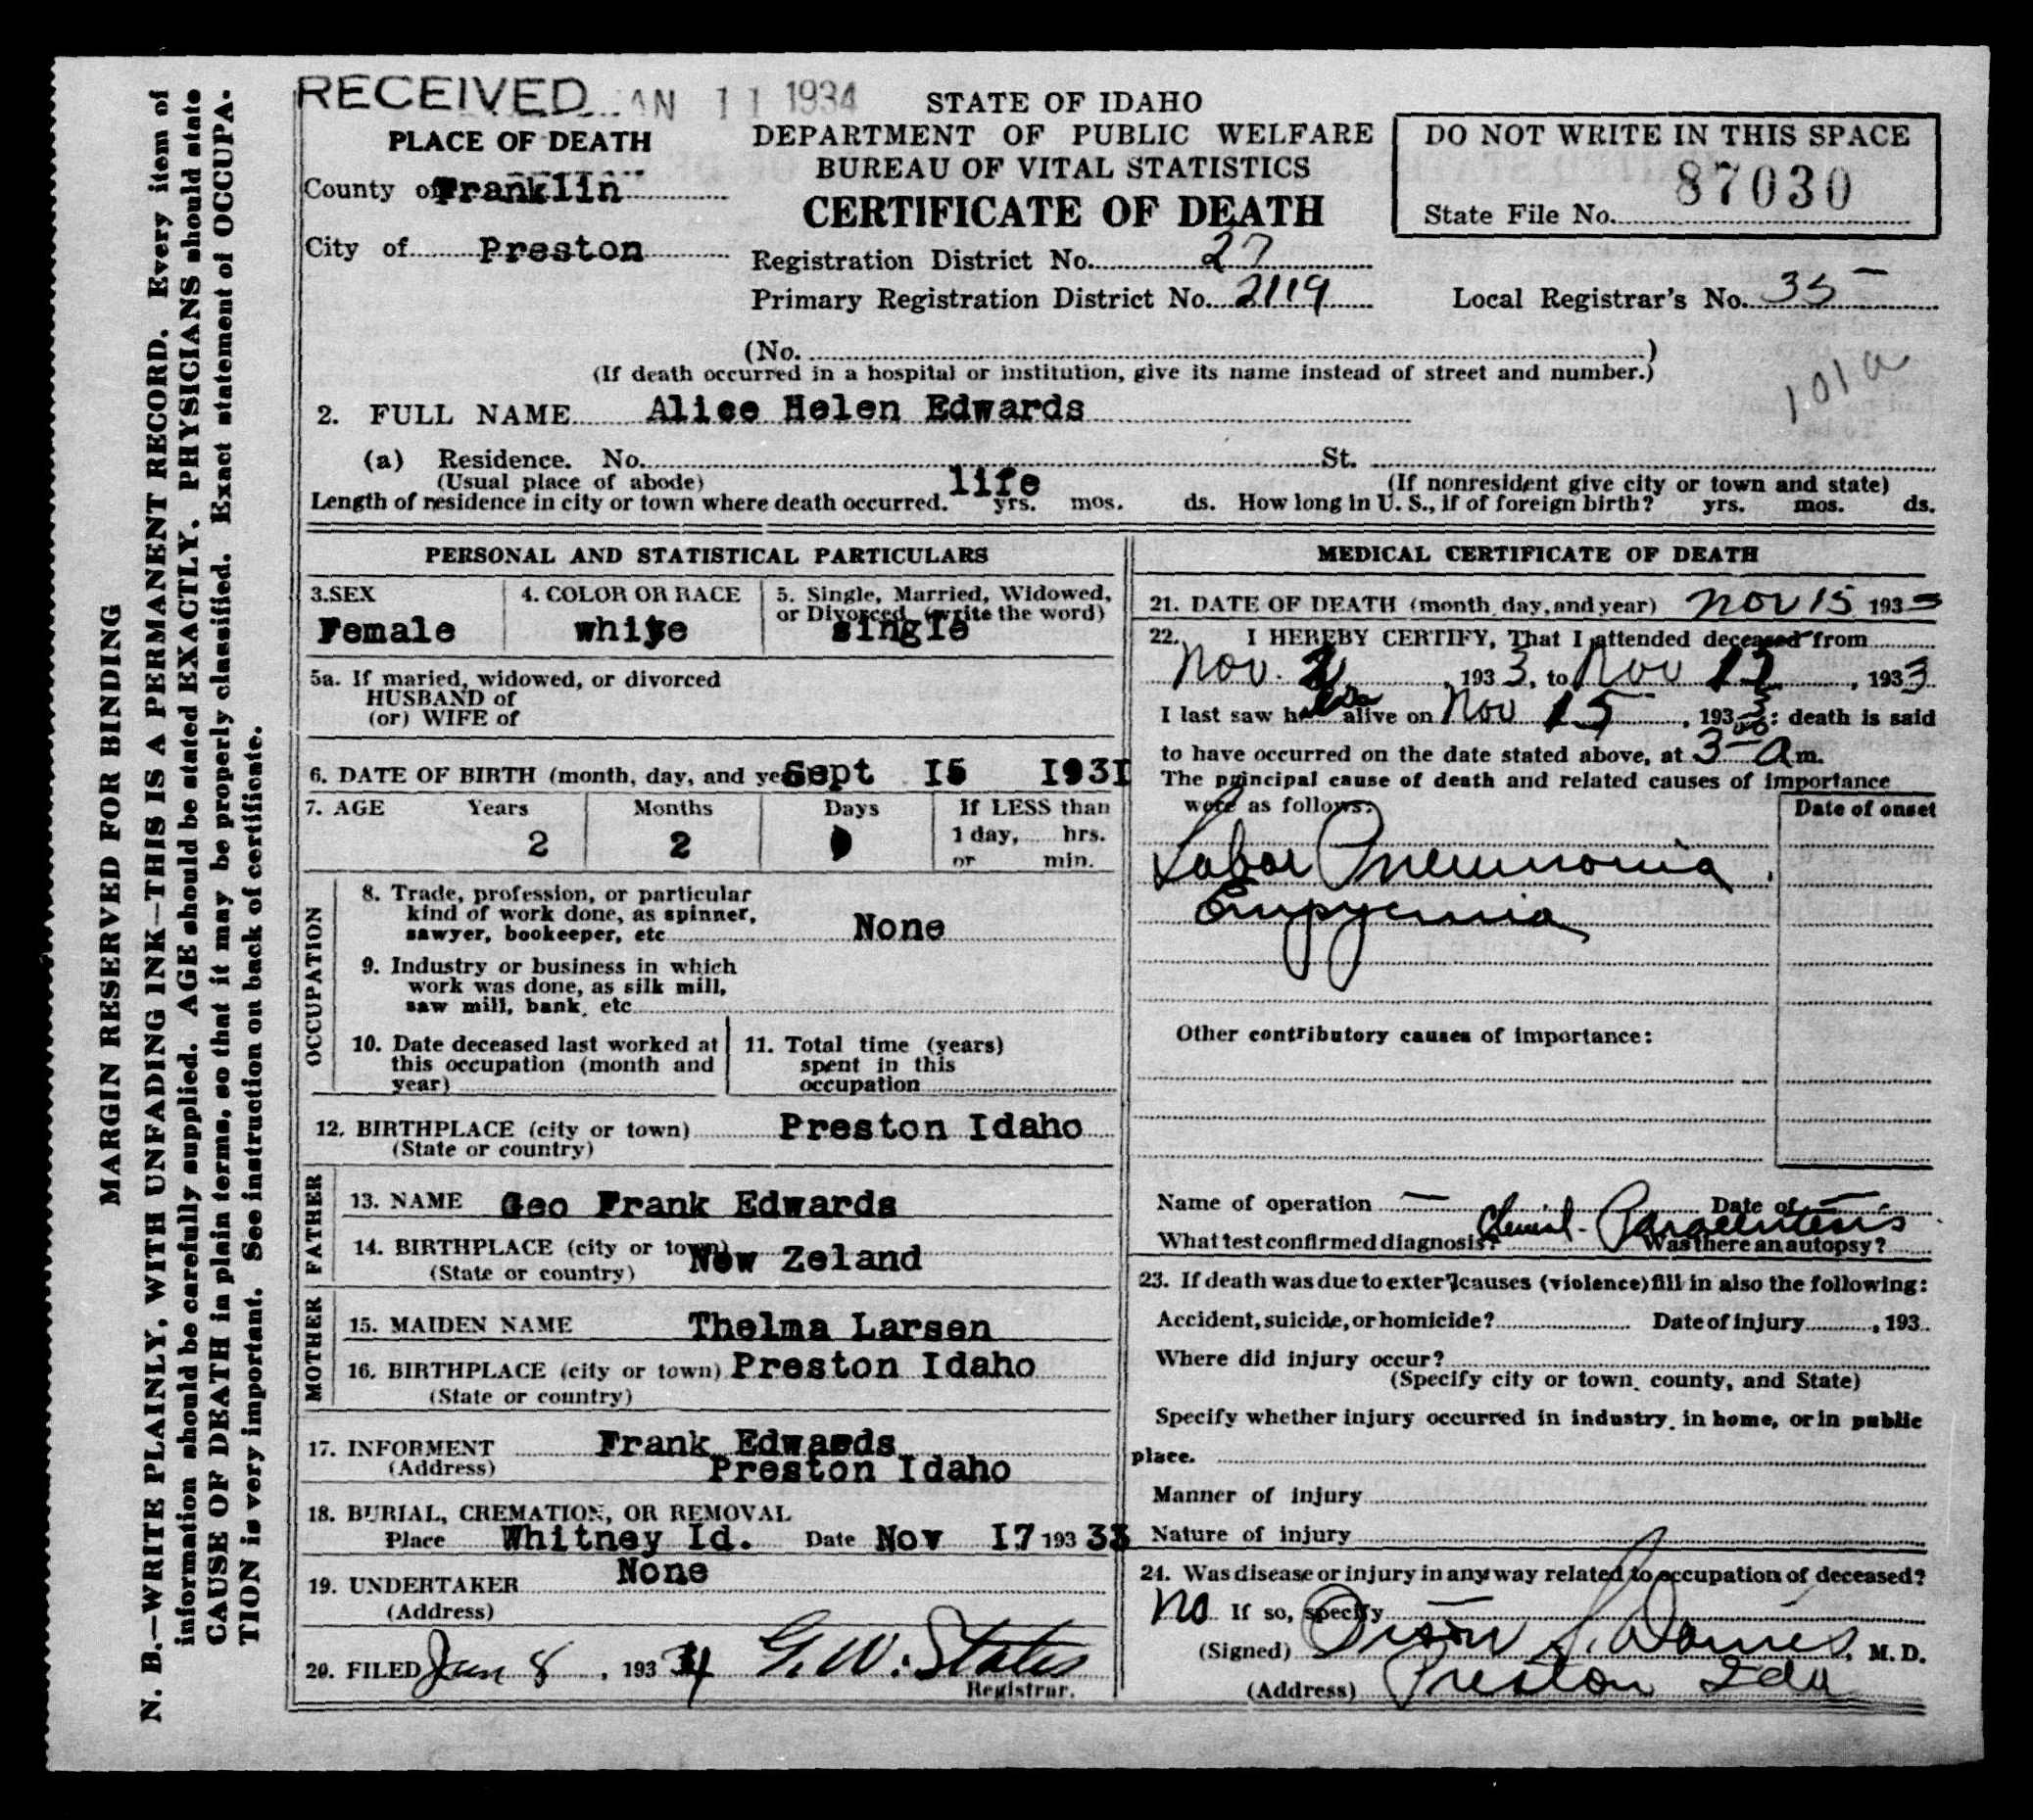 MARGIN RESERVED FOR BINDING
N. B.—WRITE PLAINLY, WITH UNFADING INK—THIS IS A PERMANENT RECORD. Every item of
information should be carefully supplied. AGE should be stated EXACTLY. PHYSICIANS should state
CAUSE OF DEATH in plain terms, so that it may be properly classified. Exact statement of OCCUPA-
TION is very important. See instruction on back of certificate.
RECEIVED JAN 11 1934
PLACE OF DEATH
County of Franklin
City of Preston
STATE OF IDAHO
DEPARTMENT OF PUBLIC WELFARE
BUREAU OF VITAL STATISTICS
CERTIFICATE OF DEATH
Registration District No. 27
Primary Registration District No. 2119
DO NOT WRITE IN THIS SPACE
87030
State File No.
Local Registrar's No. 35
(No. )
(If death occurred in a hospital or institution, give its name instead of street and number.)
101a
2. FULL NAME Alice Helen Edwards
(a) Residence. No. St.
(Usual place of abode) (If nonresident give city or town and state)
Length of residence in city or town where death occurred. life yrs. mos. ds. How long in U. S., if of foreign birth? yrs. mos. ds.
PERSONAL AND STATISTICAL PARTICULARS
3.SEX
Female
4. COLOR OR RACE
white
5. Single, Married, Widowed,
or Divorced (write the word)
single
5a. If maried, widowed, or divorced
HUSBAND of
(or) WIFE of
6. DATE OF BIRTH (month, day, and year) Sept I5 I93I
7. AGE Years Months Days If LESS than
2 2 1 day, hrs.
or min.
OCCUPATION
8. Trade, profession, or particular
kind of work done, as spinner,
sawyer, bookeeper, etc None
9. Industry or business in which
work was done, as silk mill,
saw mill, bank, etc
10. Date deceased last worked at
this occupation (month and
year)
11. Total time (years)
spent in this
occupation
12. BIRTHPLACE (city or town) Preston Idaho
(State or country)
FATHER
13. NAME Geo Frank Edwards
14. BIRTHPLACE (city or town) New Zeland
(State or country)
MOTHER
15. MAIDEN NAME Thelma Larsen
16. BIRTHPLACE (city or town) Preston Idaho
(State or country)
17. INFORMENT Frank Edwards
(Address) Preston Idaho
18. BURIAL, CREMATION, OR REMOVAL
Place Whitney Id. Date Nov I7 193 33
19. UNDERTAKER None
(Address)
20. FILED Jan 8, 1934 G. W. States
Registrar.
MEDICAL CERTIFICATE OF DEATH
21. DATE OF DEATH (month, day, and year) Nov 15 1933
22. I HEREBY CERTIFY, That I attended deceased from
Nov. 2, 1933, to Nov , 1933
I last saw her alive on Nov 15, 1933: death is said
to have occurred on the date stated above, at 3 a m.
The principal cause of death and related causes of importance
were as follows: Date of onset
Lobar Pneumonia
Empyemia
Other contributory causes of importance:
Name of operation — Date of —
What test confirmed diagnosis? Paracentesis Was there an autopsy?
23. If death was due to exter causes (violence) fill in also the following:
Accident, suicide, or homicide? Date of injury , 193
Where did injury occur?
(Specify city or town, county, and State)
Specify whether injury occurred in industry, in home, or in public
place.
Manner of injury
Nature of injury
24. Was disease or injury in any way related to occupation of deceased?
No If so, specify
(Signed) Orson , M. D.
(Address) Preston Ida